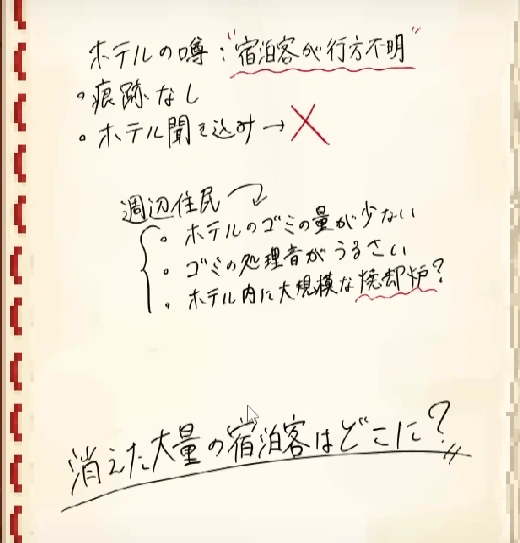 ホテルの噂:"宿泊客が行方不明"
・痕跡なし
・ホテル聞き込み→×
周辺住民
・ホテルのゴミの量が少ない
・ゴミの処理音がうるさい
・ホテル内に大規模な焼却炉?
消えた大量の宿泊客はどこに?